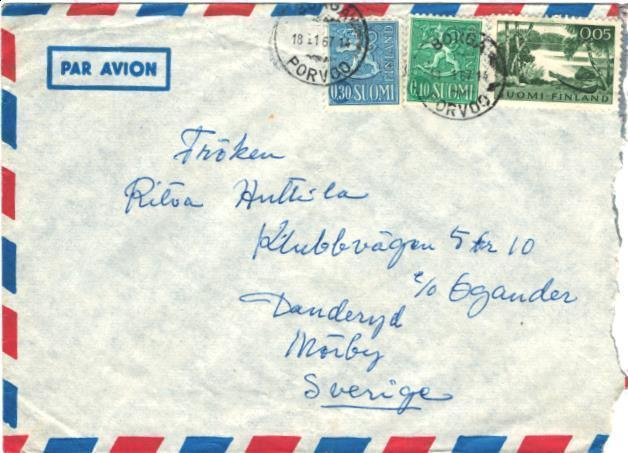 BORGÅ
18 11 67 14
PORVOO
0,30 SUOMI FINLAND
BORGÅ
67 14
PORVOO
0,10 SUOMI
0,05
SUOMI-FINLAND
PAR AVION
Fröken
Ritva Huttula
Klubbvägen 5 tr 10
c/o Egander
Danderyd
Mörby
Sverige